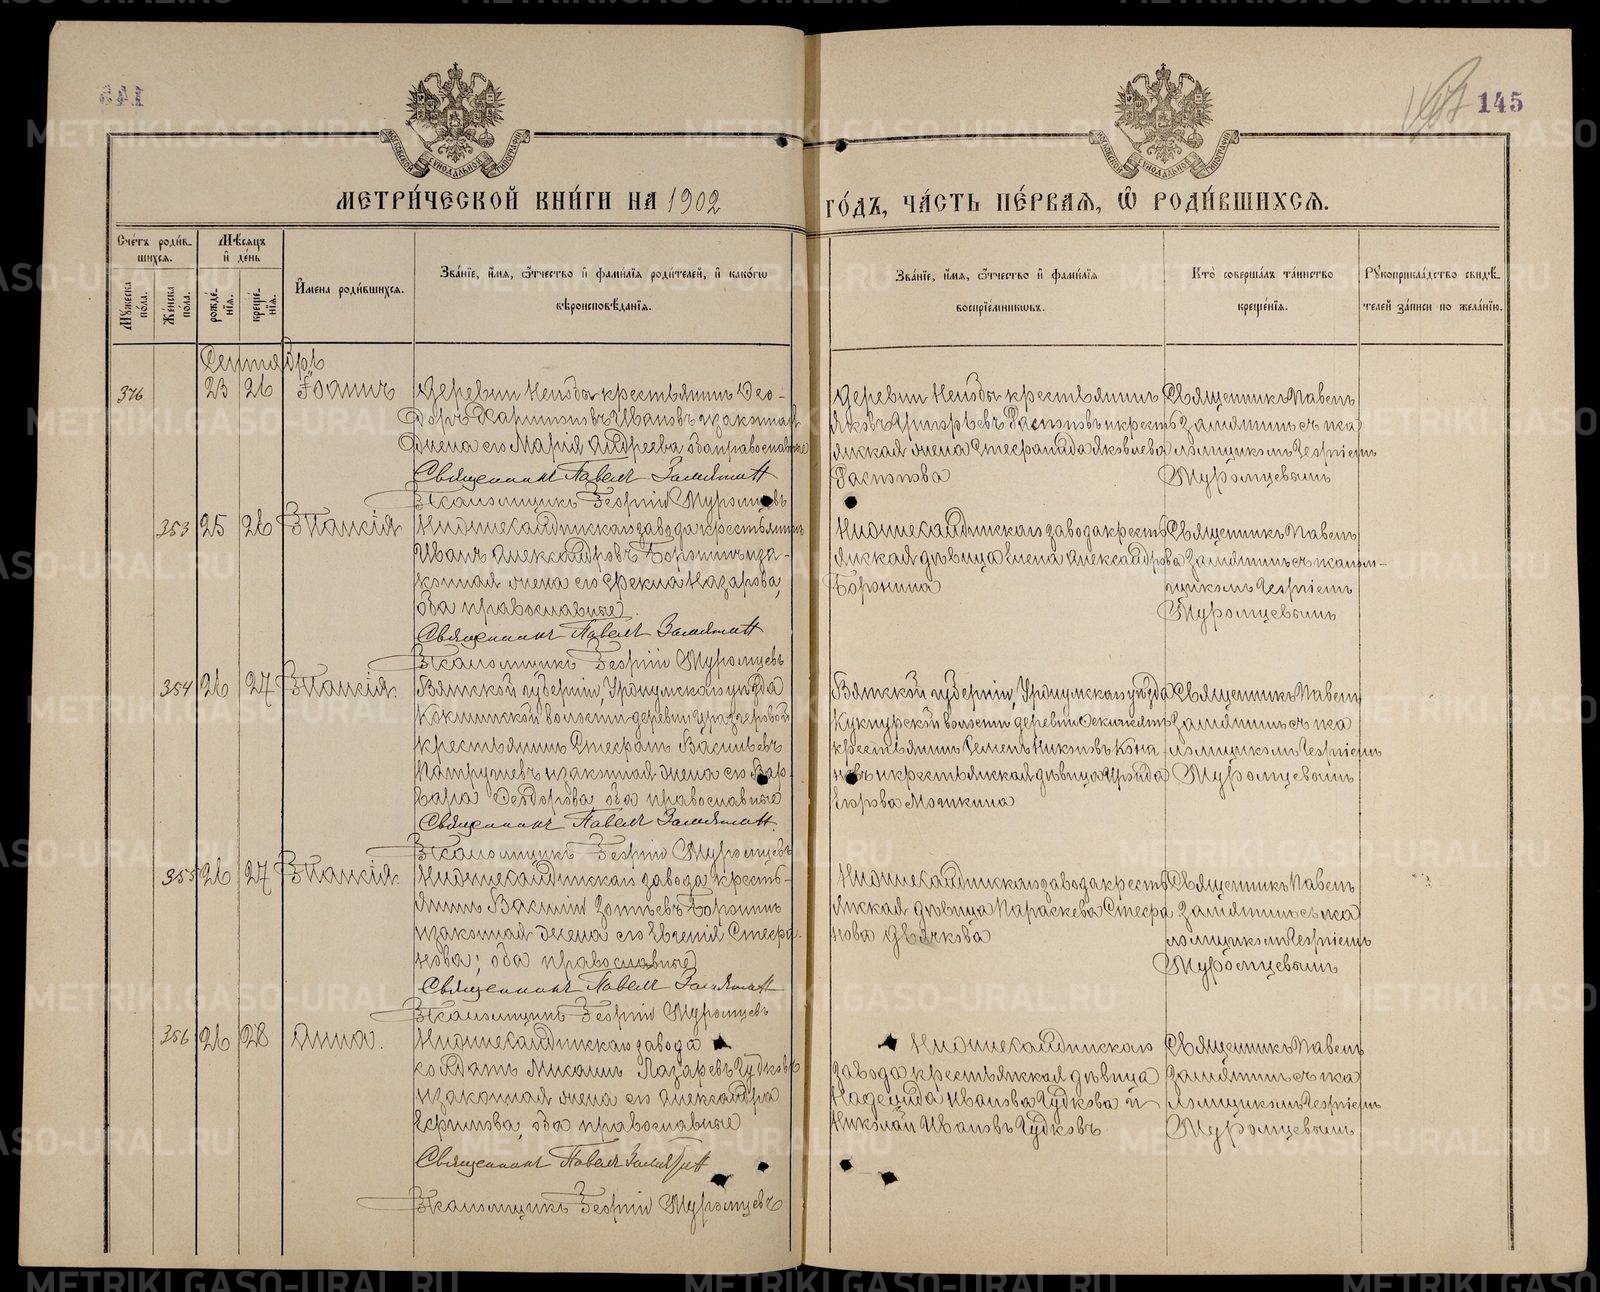 145
МЕТРИ́ЧЕСКОЙ КНИ́ГИ НА 1902 ГО́ДЪ, ЧА́СТЬ ПЕ́РВАѦ, Ѿ РОДИ́ВШИХСѦ.
Счетъ роди́вшихсѧ.
Мѣ́сѧцъ и҆ де́нь
Мꙋ́жеска по́ла.
Же́нска по́ла.
рожде́нїѧ.
креще́нїѧ.
И҆мена̀ роди́вшихсѧ.
Зва́нїе, и҆́мѧ, ѻ҆́тчество и҆ фами́лїѧ роди́телей, и҆ како́гѡ
вѣроисповѣ́данїѧ.
Зва́нїе, и҆́мѧ, ѻ҆́тчество и҆ фами́лїѧ
воспрїе́мникѡвъ.
Кто̀ соверша́лъ та́инство
креще́нїѧ.
Рꙋкоприкла́дство свидѣ́телей за́писи по жела́нїю.
Сентябрь
376 23 26 Іоаннъ
крестьянинъ Ѳео-
доръ Харитоновъ Ивановъ и законная
жена его Марія Андреева оба православные
Священникъ Павелъ Замятинъ
Псаломщикъ Георгій Муромцевъ
крестьянинъ
Яковъ Григорьевъ Распоповъ и кресть
янская жена Стефанида Яковлева
Распопова
Священникъ Павелъ
Замятинъ съ пса
ломщикомъ Георгіемъ
Муромцевымъ
353 25 26 Таисія
Нижнесалдинскаго завода крестьянинъ
Иванъ Александровъ Боронинъ и за-
конная жена его Ѳекла Назарова,
оба православные
Священникъ Павелъ Замятинъ
Псаломщикъ Георгій Муромцевъ
Нижнесалдинскаго завода кресть
янская дѣвица Елена Александрова
Боронина
Священникъ Павелъ
Замятинъ съ псалом-
щикомъ Георгіемъ
Муромцевымъ
354 26 27 Таисія.
Вятской губерніи, Уржумскаго уѣзда
волости деревни
крестьянинъ Стефанъ Васильевъ
и законная жена его Вар-
вара Ѳеодорова, оба православные
Священникъ Павелъ Замятинъ.
Псаломщикъ Георгій Муромцевъ
Вятской губерніи, Уржумскаго уѣзда
волости деревни
крестьянинъ Семенъ Никоновъ Коно-
новъ и крестьянская дѣвица Ираида
Егорова Мошкина
Священникъ Павелъ
Замятинъ съ пса
ломщикомъ Георгіемъ
Муромцевымъ
355 26 27 Таисія.
Нижнесалдинскаго завода кресть-
янинъ Василій Зотѣевъ Боронинъ
и законная жена его Евгенія Стефа-
нова; оба православные
Священникъ Павелъ Замятинъ
Псаломщикъ Георгій Муромцевъ
Нижнесалдинскаго завода кресть
янская дѣвица Параскева Стефа
нова Дьячкова
Священникъ Павелъ
Замятинъ съ пса
ломщикомъ Георгіемъ
Муромцевымъ
356 26 28 Анна.
Нижнесалдинскаго завода
солдатъ Михаилъ Лазаревъ Гудковъ
и законная жена его Александра
Ефимова, оба православные
Священникъ Павелъ Замятинъ
Псаломщикъ Георгій Муромцевъ
Нижнесалдинскаго
завода крестьянская дѣвица
Надежда Иванова Гудкова и
Николай Ивановъ Гудковъ.
Священникъ Павелъ
Замятинъ съ пса
ломщикомъ Георгіемъ
Муромцевымъ
METRIKI.GASO-URAL.RU